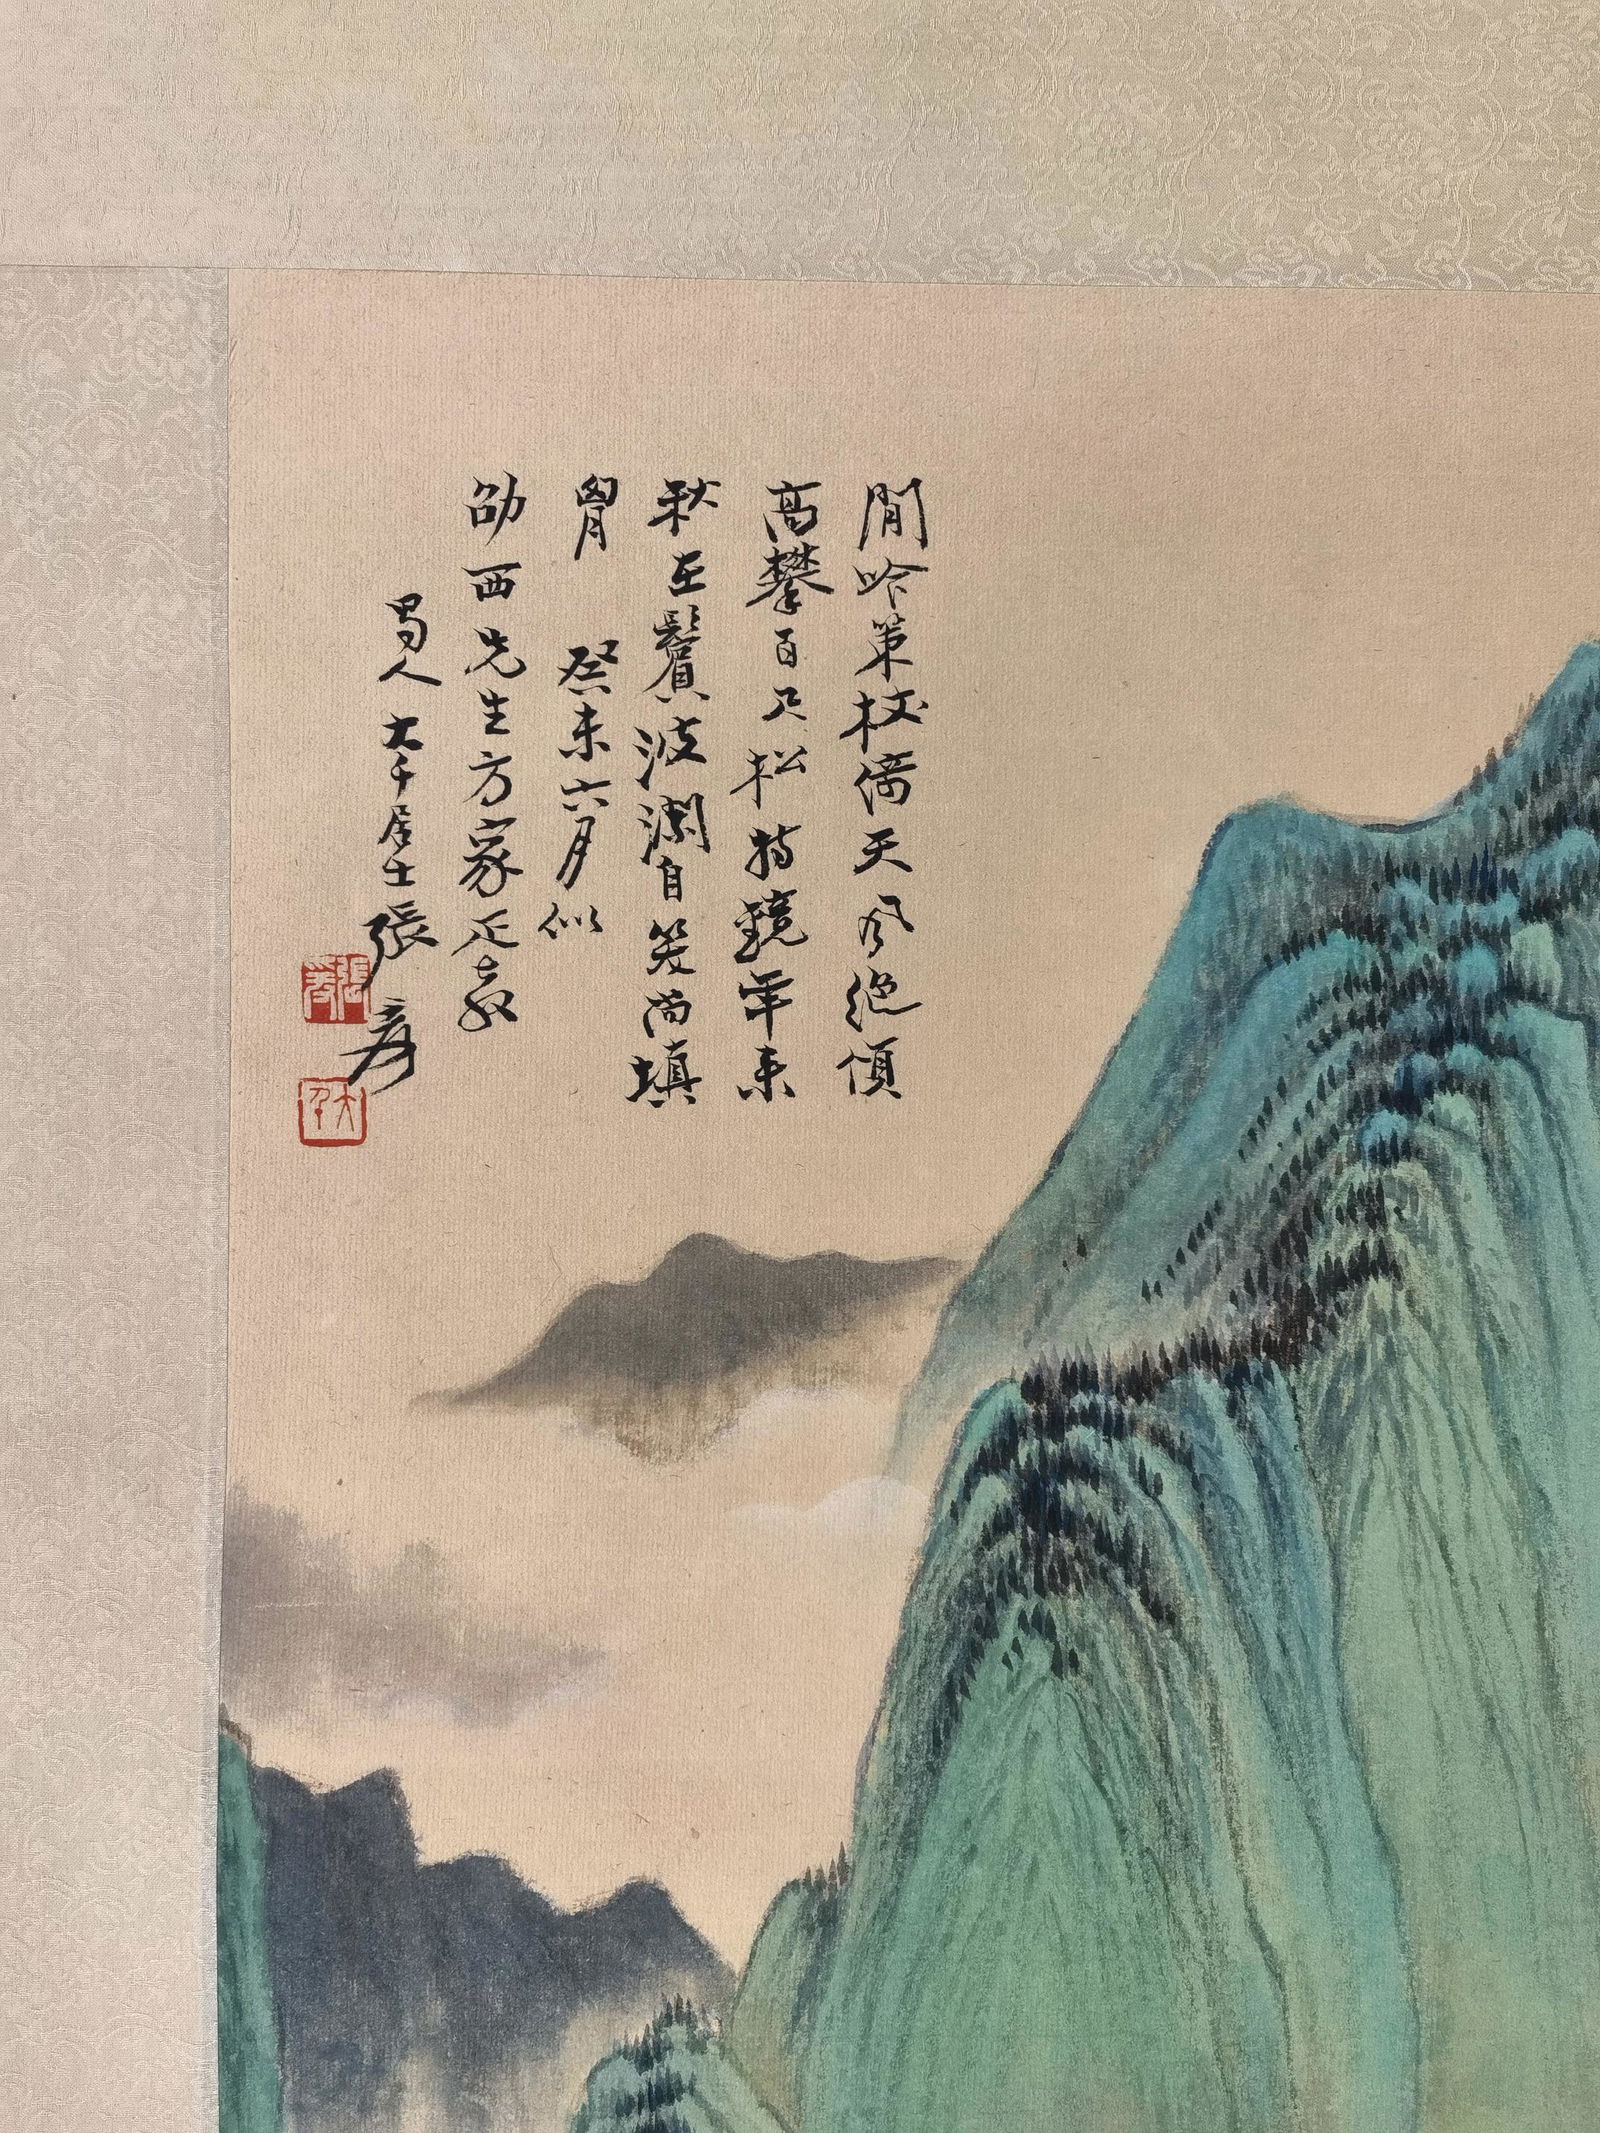 閒吟策杖倚天風絕頂
高攀百尺松持鏡年來
秋在鬢波瀾自笑尚填
胷 癸未六月似
劭西先生方家正教
蜀人大千居士張爰
張爰
大千